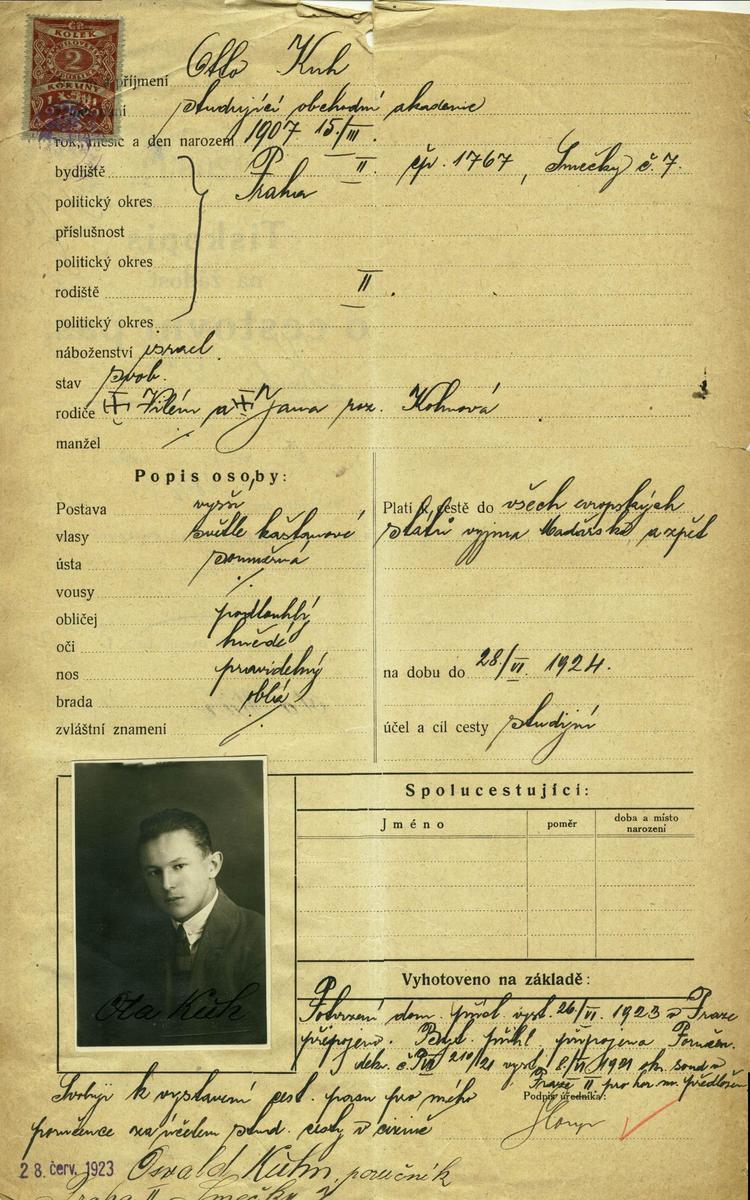 KOLEK
2
KORUNY
a příjmení Otto Kuh
studující obchodní akademie
rok, měsíc a den narození 1907 15/III.
bydliště Praha II. čp. 1767, Smečky č. 7.
politický okres
příslušnost
politický okres
rodiště II.
politický okres
náboženství israel.
stav svob.
rodiče Vilém a Jana roz. Kohnová
manžel
Popis osoby:
Postava vyšší
vlasy světle kaštanové
ústa souměrná
vousy
obličej podlouhlý
oči hnědé
nos pravidelný
brada oblá
zvláštní znamení
Platí k cestě do všech evropských
států vyjma Maďarska a zpět
na dobu do 28/VI. 1924.
účel a cíl cesty studijní
Ota Kuh
Spolucestující:
Jméno poměr doba a místo narození
Vyhotoveno na základě:
Potvrzení dom. přísl. vyst. 26/VI. 1923 v Praze
připojeno. Pout. přihl. připojena Poručen.
dekr. č. 210/21 vyst. 1921 okr. soud v
Praze II pro předložen
Podpis úředníka:
Svoluji k vystavení cest. pasu pro mého
poručence za účelem stud. cesty v cizině
28. červ. 1923 Osvald Kuhn, poručník
Praha II - Smečky 7